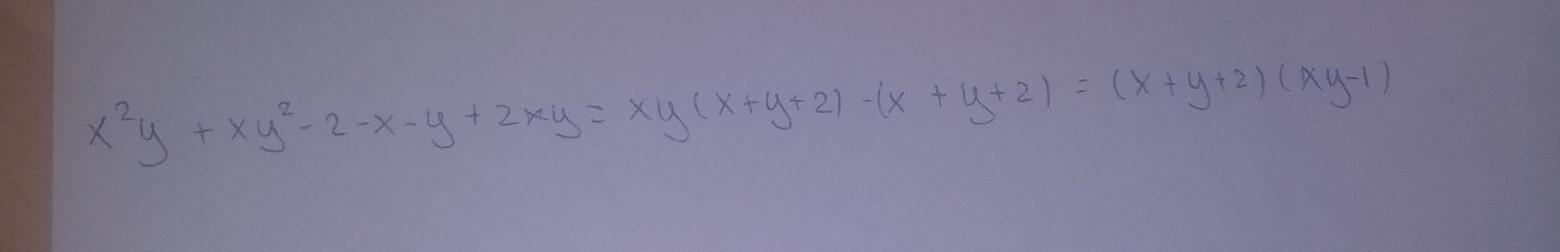 x²y + xy² - 2 - x - y + 2xy = xy(x+y+2) - (x + y+2) = (x+y+2)(xy-1)